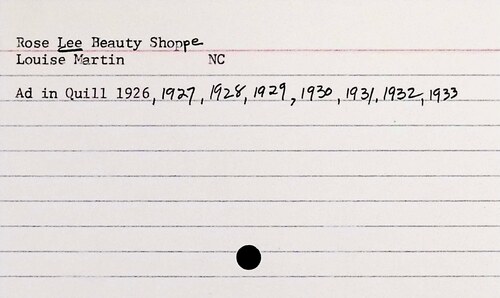 Rose Lee Beauty Shoppe
Louise Martin NC
Ad in Quill 1926, 1927, 1928, 1929, 1930, 1931, 1932, 1933